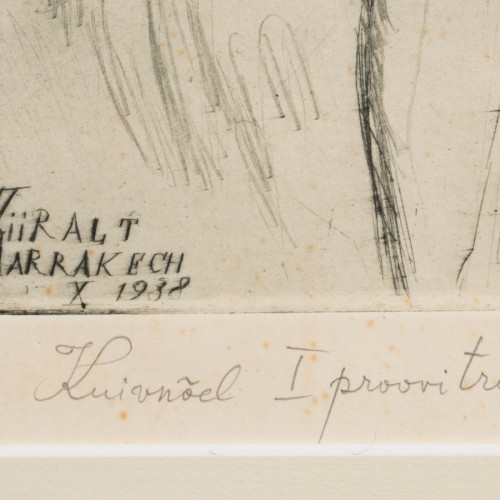 WIIRALT
MARRAKECH
X 1938
Kuivnõel I proovitrü